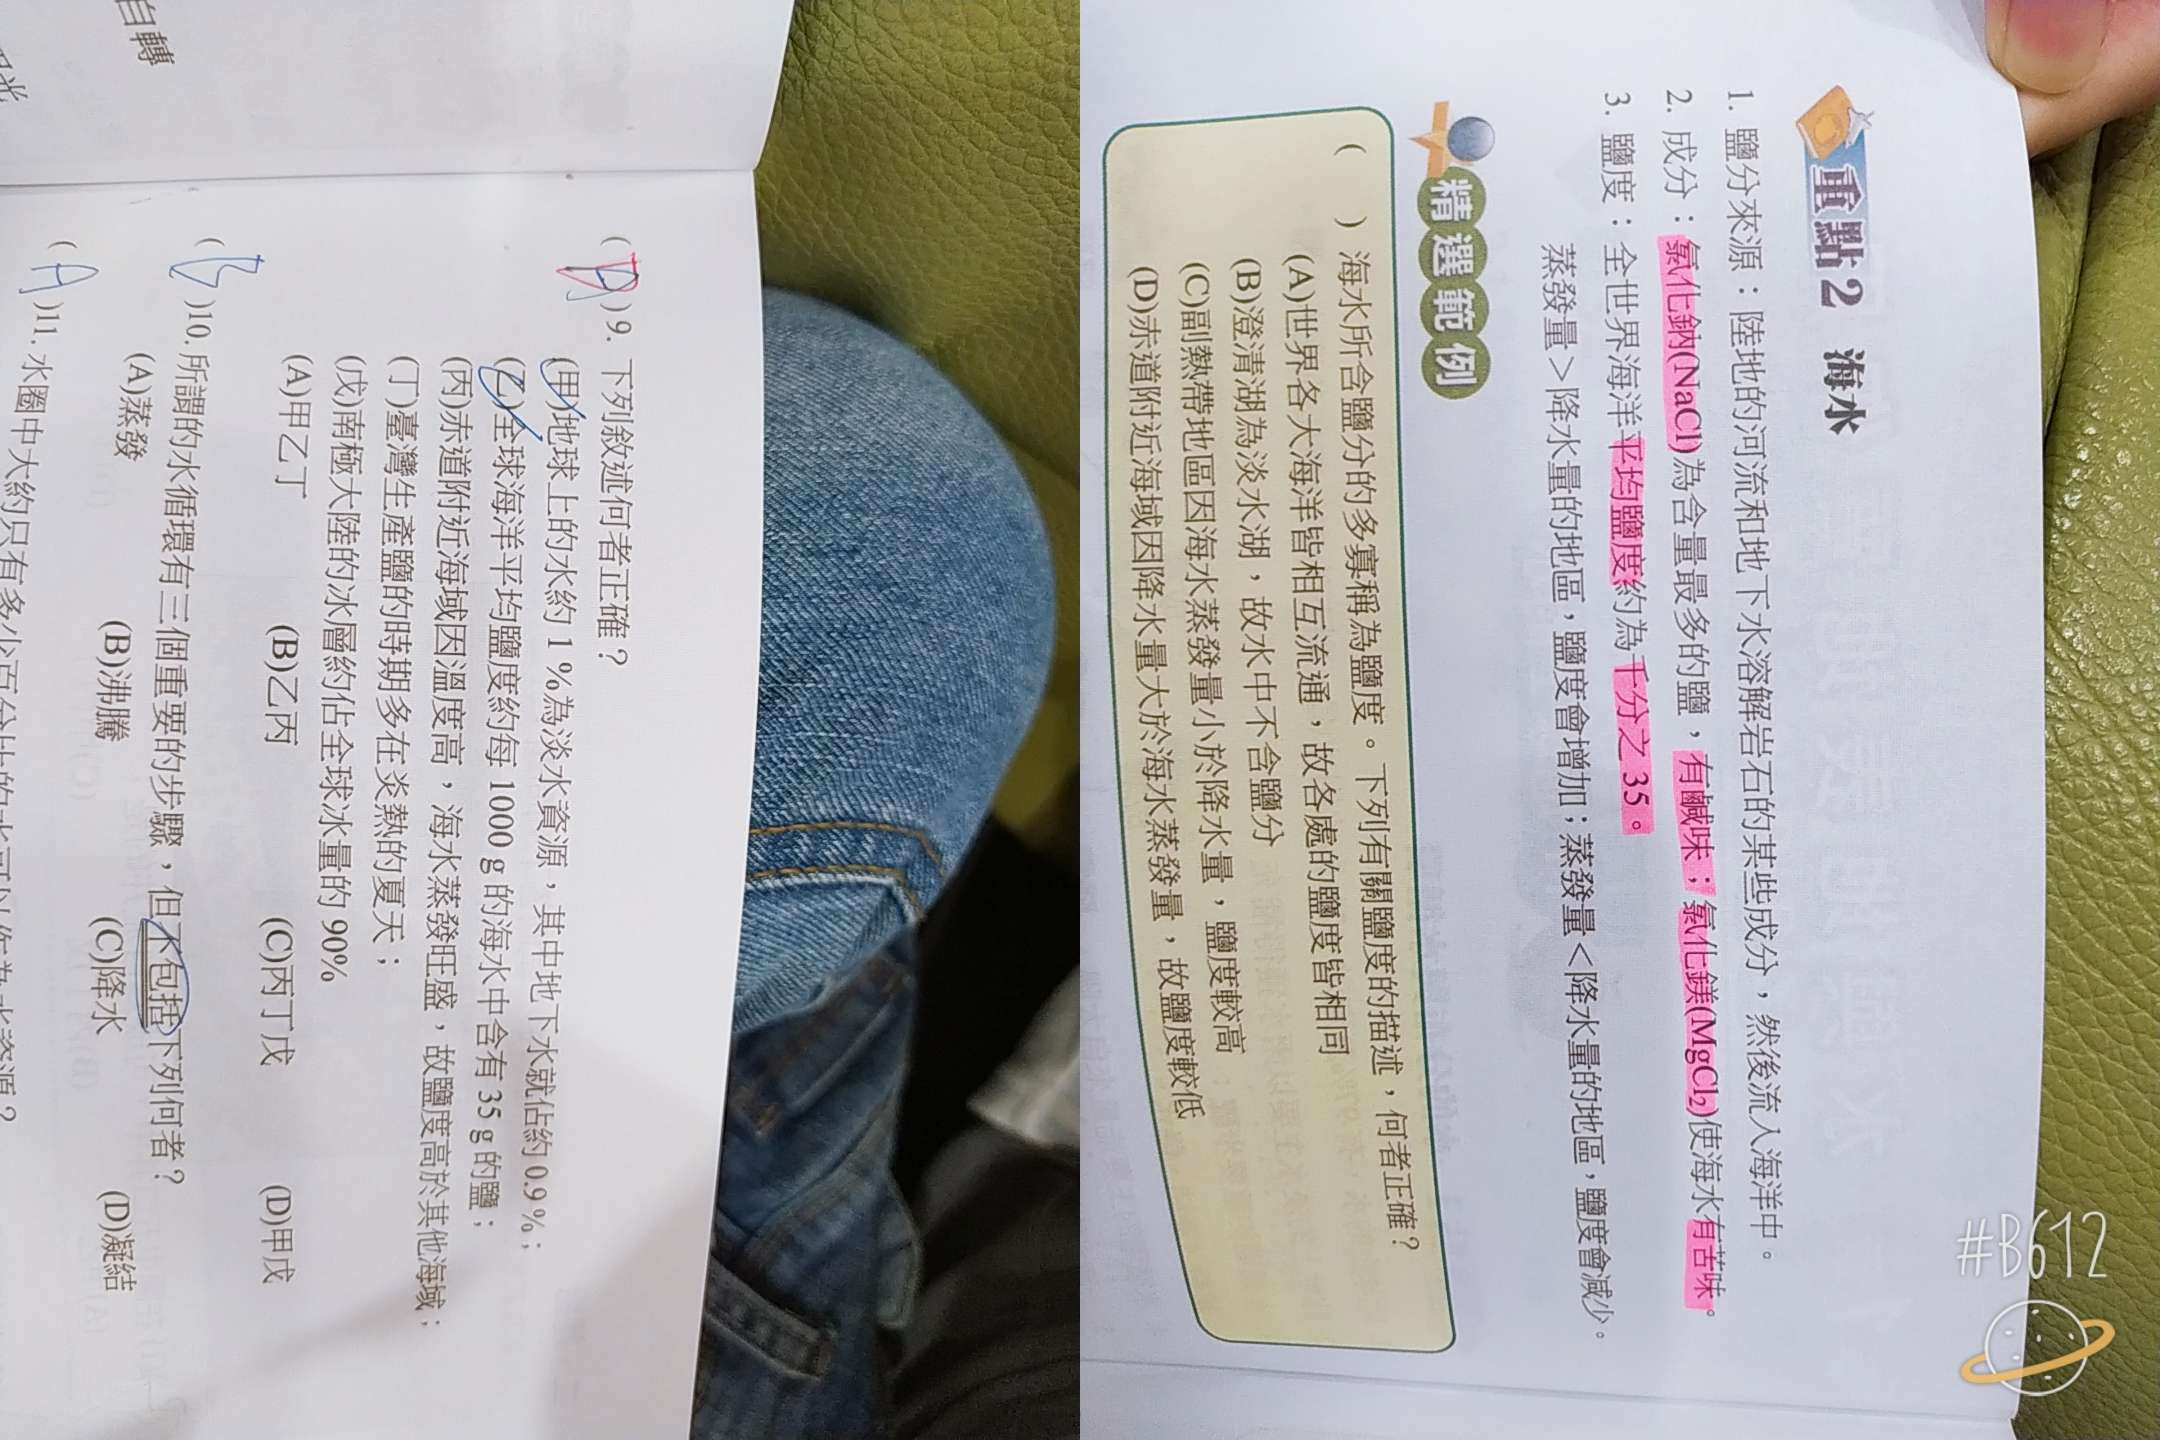 自轉
陽光
(D)9. 下列敘述何者正確？
(甲)地球上的水約 1 %為淡水資源，其中地下水就佔約 0.9 %；
(乙)全球海洋平均鹽度約每 1000 g 的海水中含有 35 g 的鹽；
(丙)赤道附近海域因溫度高，海水蒸發旺盛，故鹽度高於其他海域；
(丁)臺灣生產鹽的時期多在炎熱的夏天；
(戊)南極大陸的冰層約佔全球冰量的 90%
(A)甲乙丁 (B)乙丙 (C)丙丁戊 (D)甲戊
(B)10. 所謂的水循環有三個重要的步驟，但不包括下列何者？
(A)蒸發 (B)沸騰 (C)降水 (D)凝結
(A)11. 水圈中大約只有多少百分比的水可以作為水資源？
重點2 海水
1. 鹽分來源：陸地的河流和地下水溶解岩石的某些成分，然後流入海洋中。
2. 成分：氯化鈉(NaCl)為含量最多的鹽，有鹹味；氯化鎂(MgCl₂)使海水有苦味。
3. 鹽度：全世界海洋平均鹽度約為千分之 35。
蒸發量＞降水量的地區，鹽度會增加；蒸發量＜降水量的地區，鹽度會減少。
精選範例
( ) 海水所含鹽分的多寡稱為鹽度。下列有關鹽度的描述，何者正確？
(A)世界各大海洋皆相互流通，故各處的鹽度皆相同
(B)澄清湖為淡水湖，故水中不含鹽分
(C)副熱帶地區因海水蒸發量小於降水量，鹽度較高
(D)赤道附近海域因降水量大於海水蒸發量，故鹽度較低
#B612